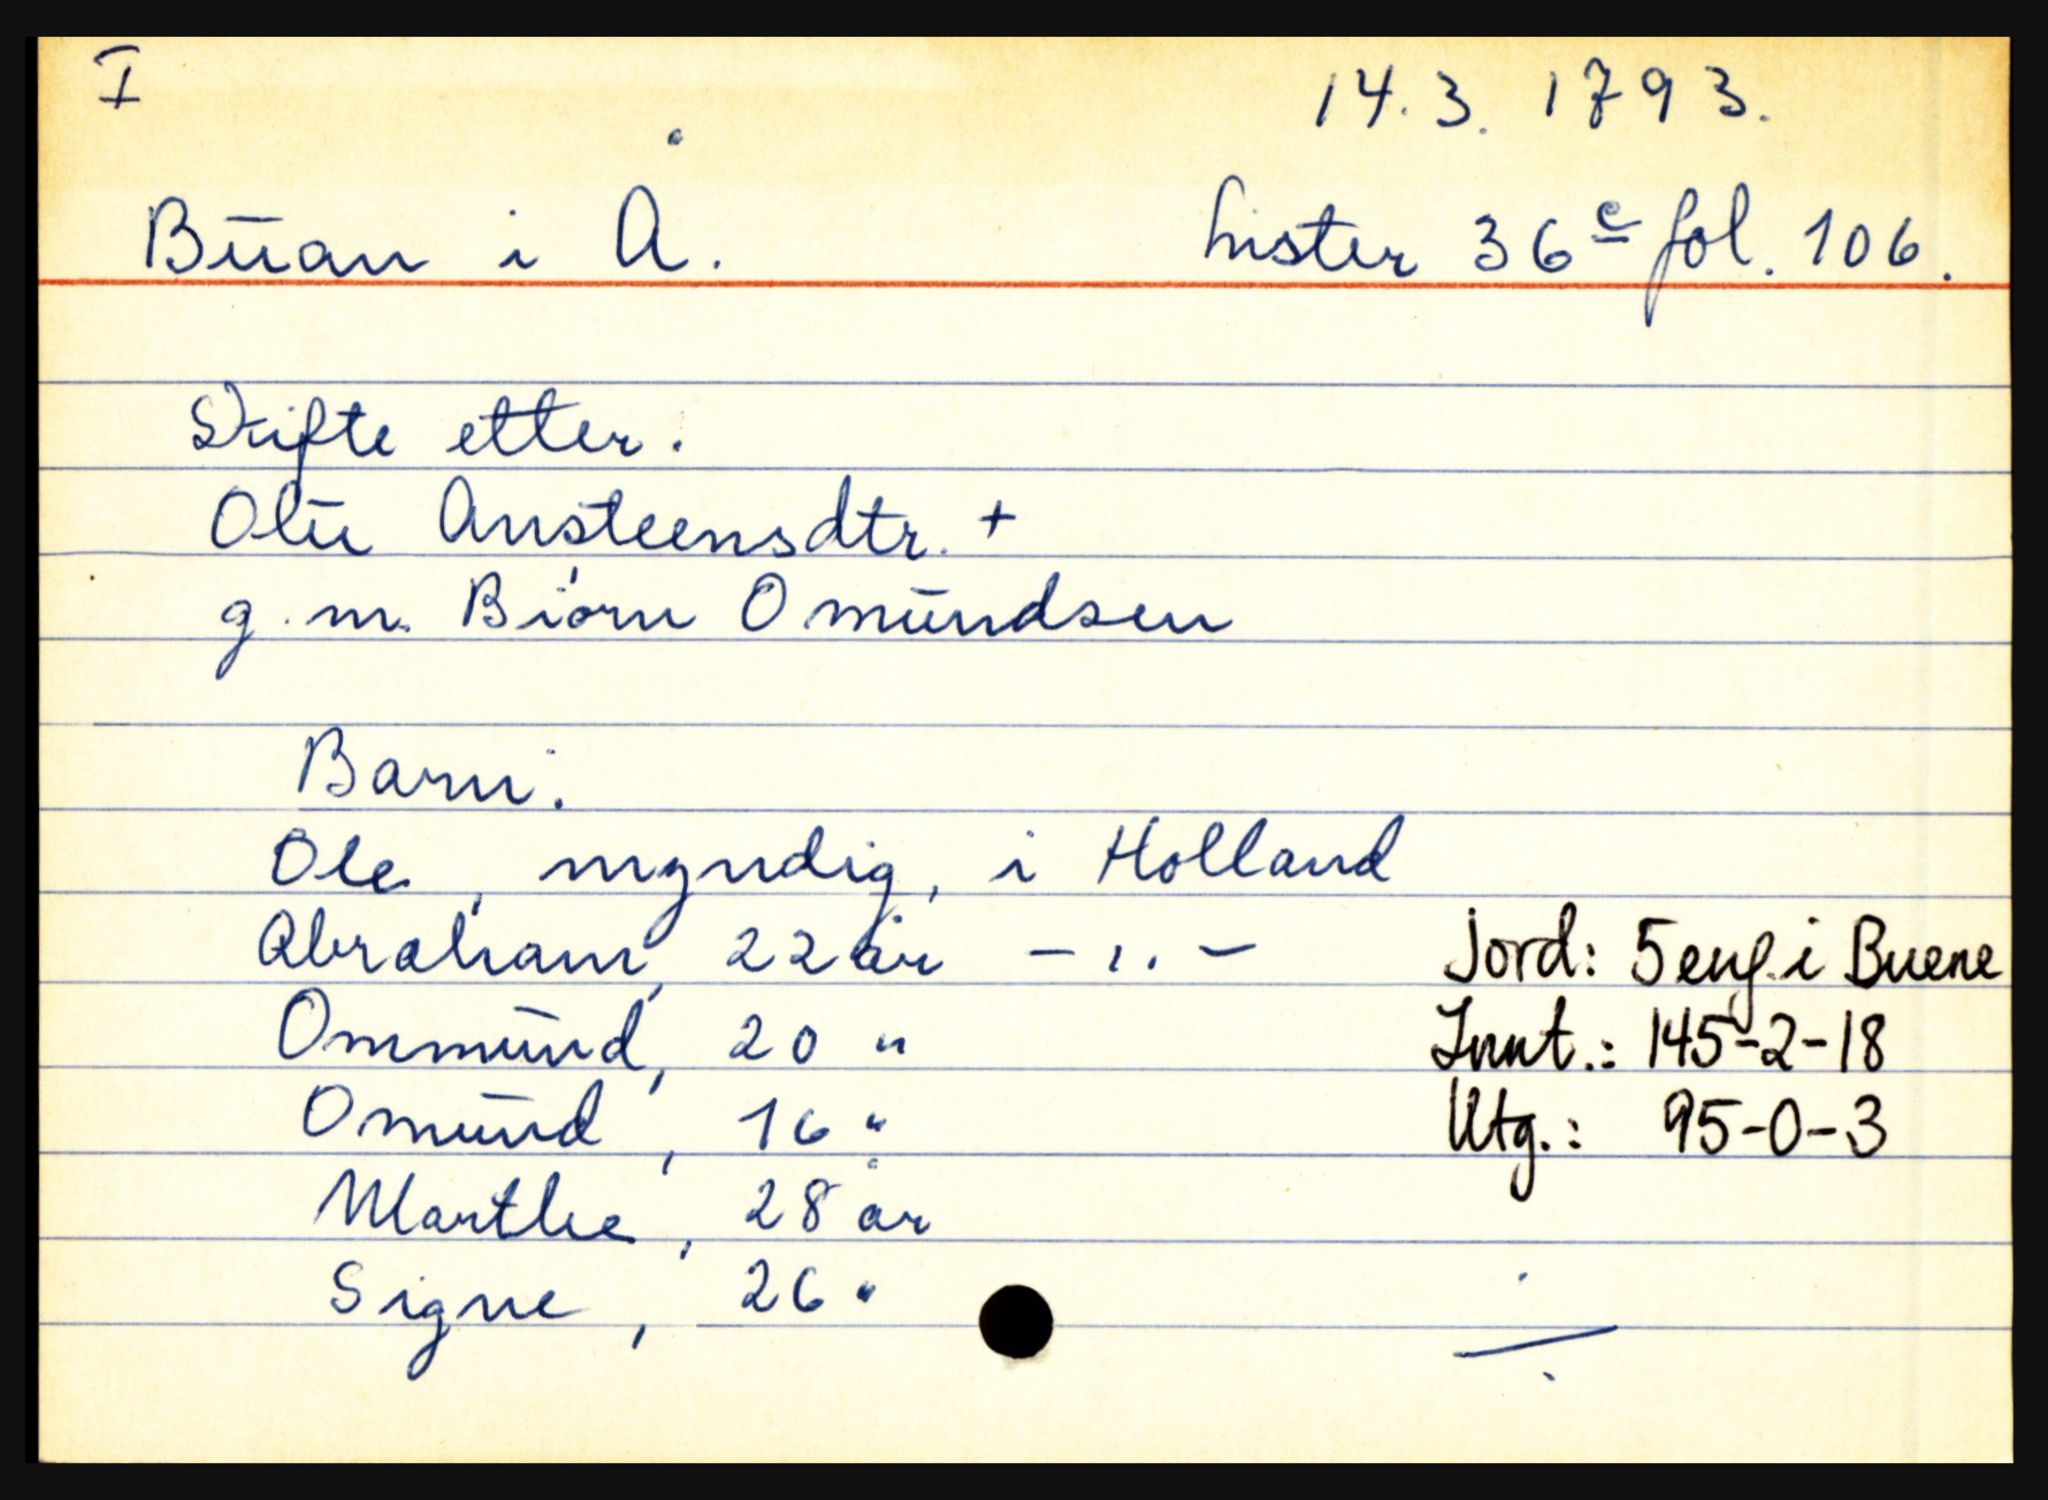 I
14. 3. 1793.
Buan i Å. Lister 36c fol. 106.
Skifte etter.
Olu Ansteensdtr. +
g. m. Biørn Omundsen
Barn:
Ole, myndig, i Holland
Abraham, 22 år - ,. -
Ommund, 20 "
Omund, 16 "
Marthe, 28 år
Signe, 26 "
Jord: 5 eng. i Buene
Innt.: 145-2-18
Utg.: 95-0-3